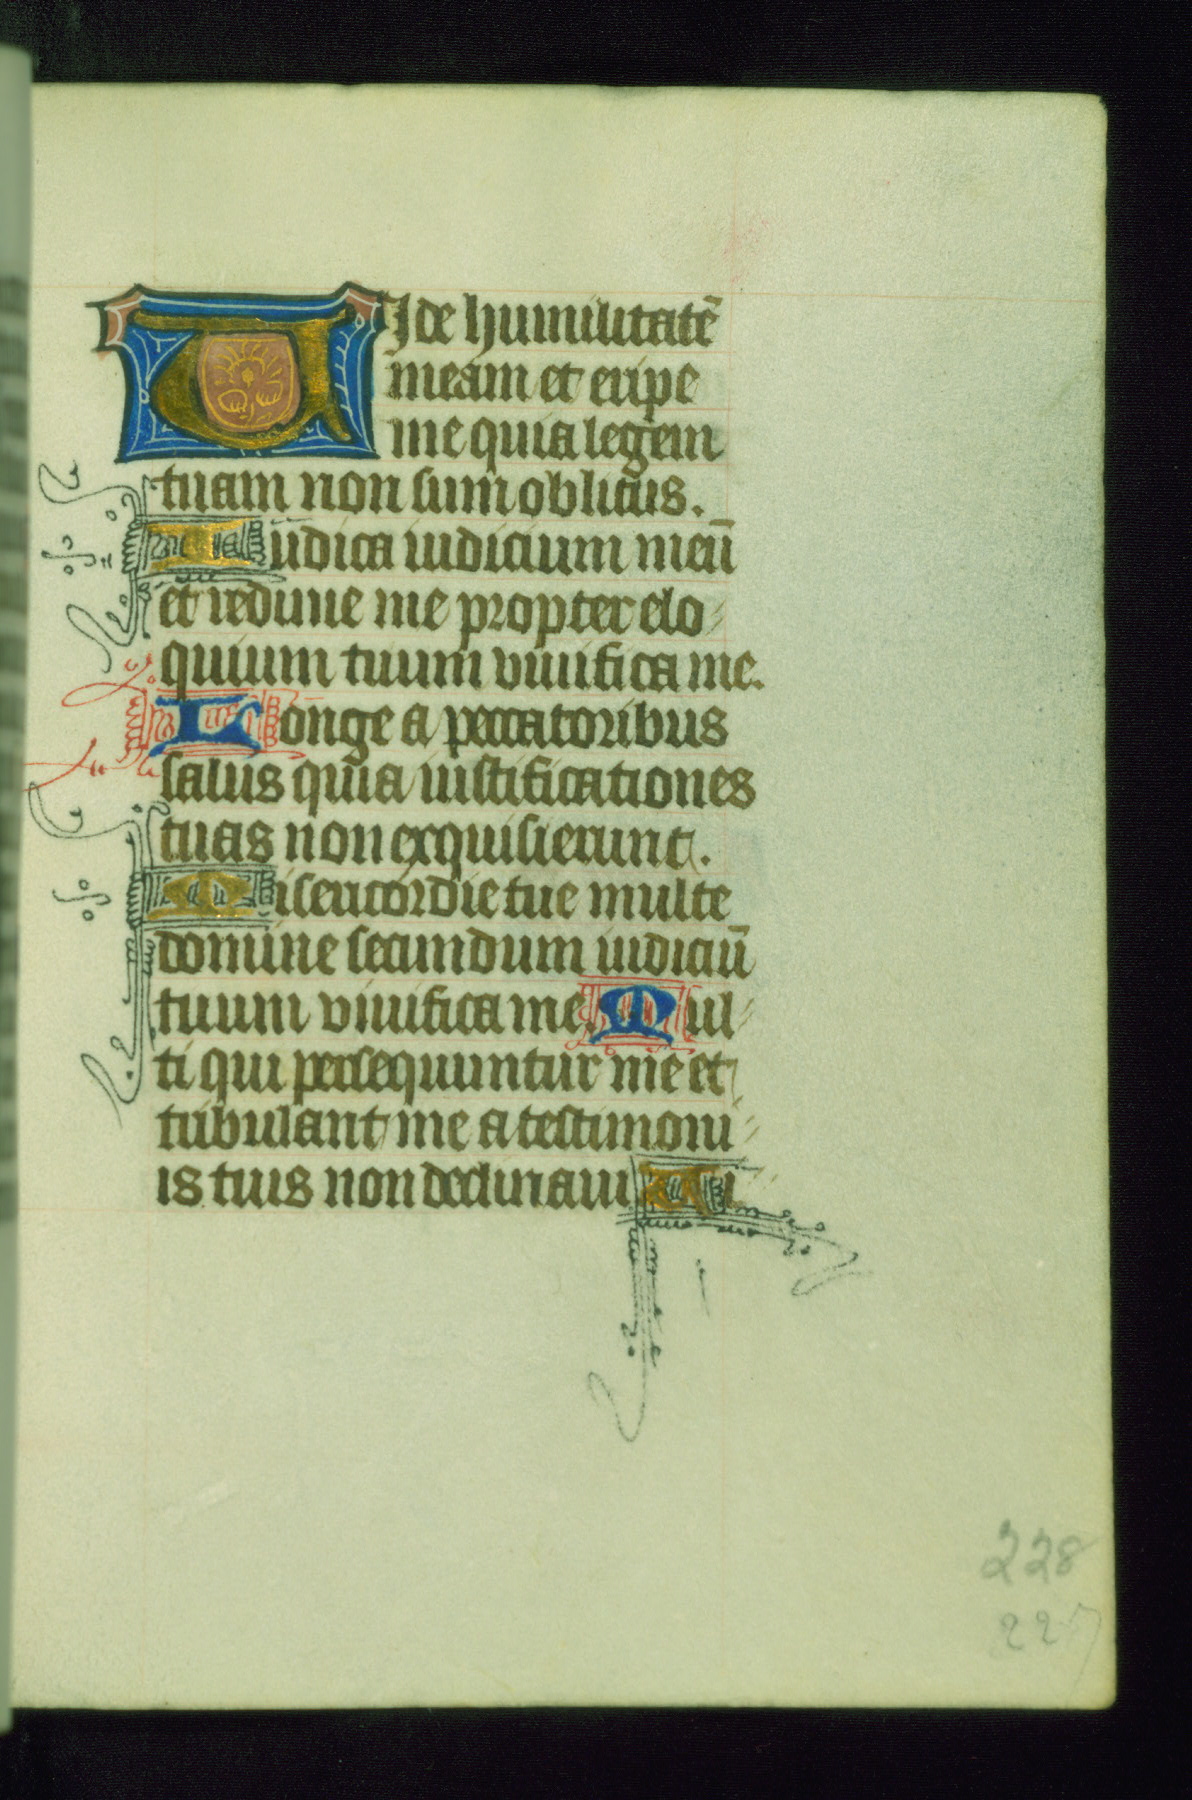 VIde humilitatē
meam et eripe
me quia legem
tuam non sum oblitus.
Iudica iudicium meū
et redime me propter elo
quium tuum vivifica me.
Longe a peccatoribus
salus quia iustificationes
tuas non exquisierunt.
Misericordie tue multe
domine secundum iudiciū
tuum vivifica me. Mul
ti qui persequuntur me et
tribulant me a testimoni
is tuis non declinavi. Vi
228
227